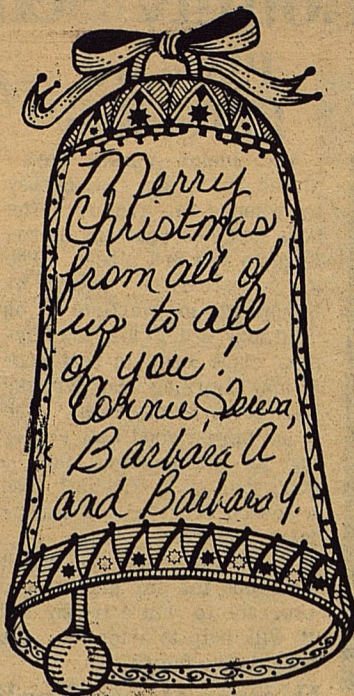 Merry
Christmas
from all of
us to all
of you!
Connie, Teresa,
Barbara A
and Barbara Y.